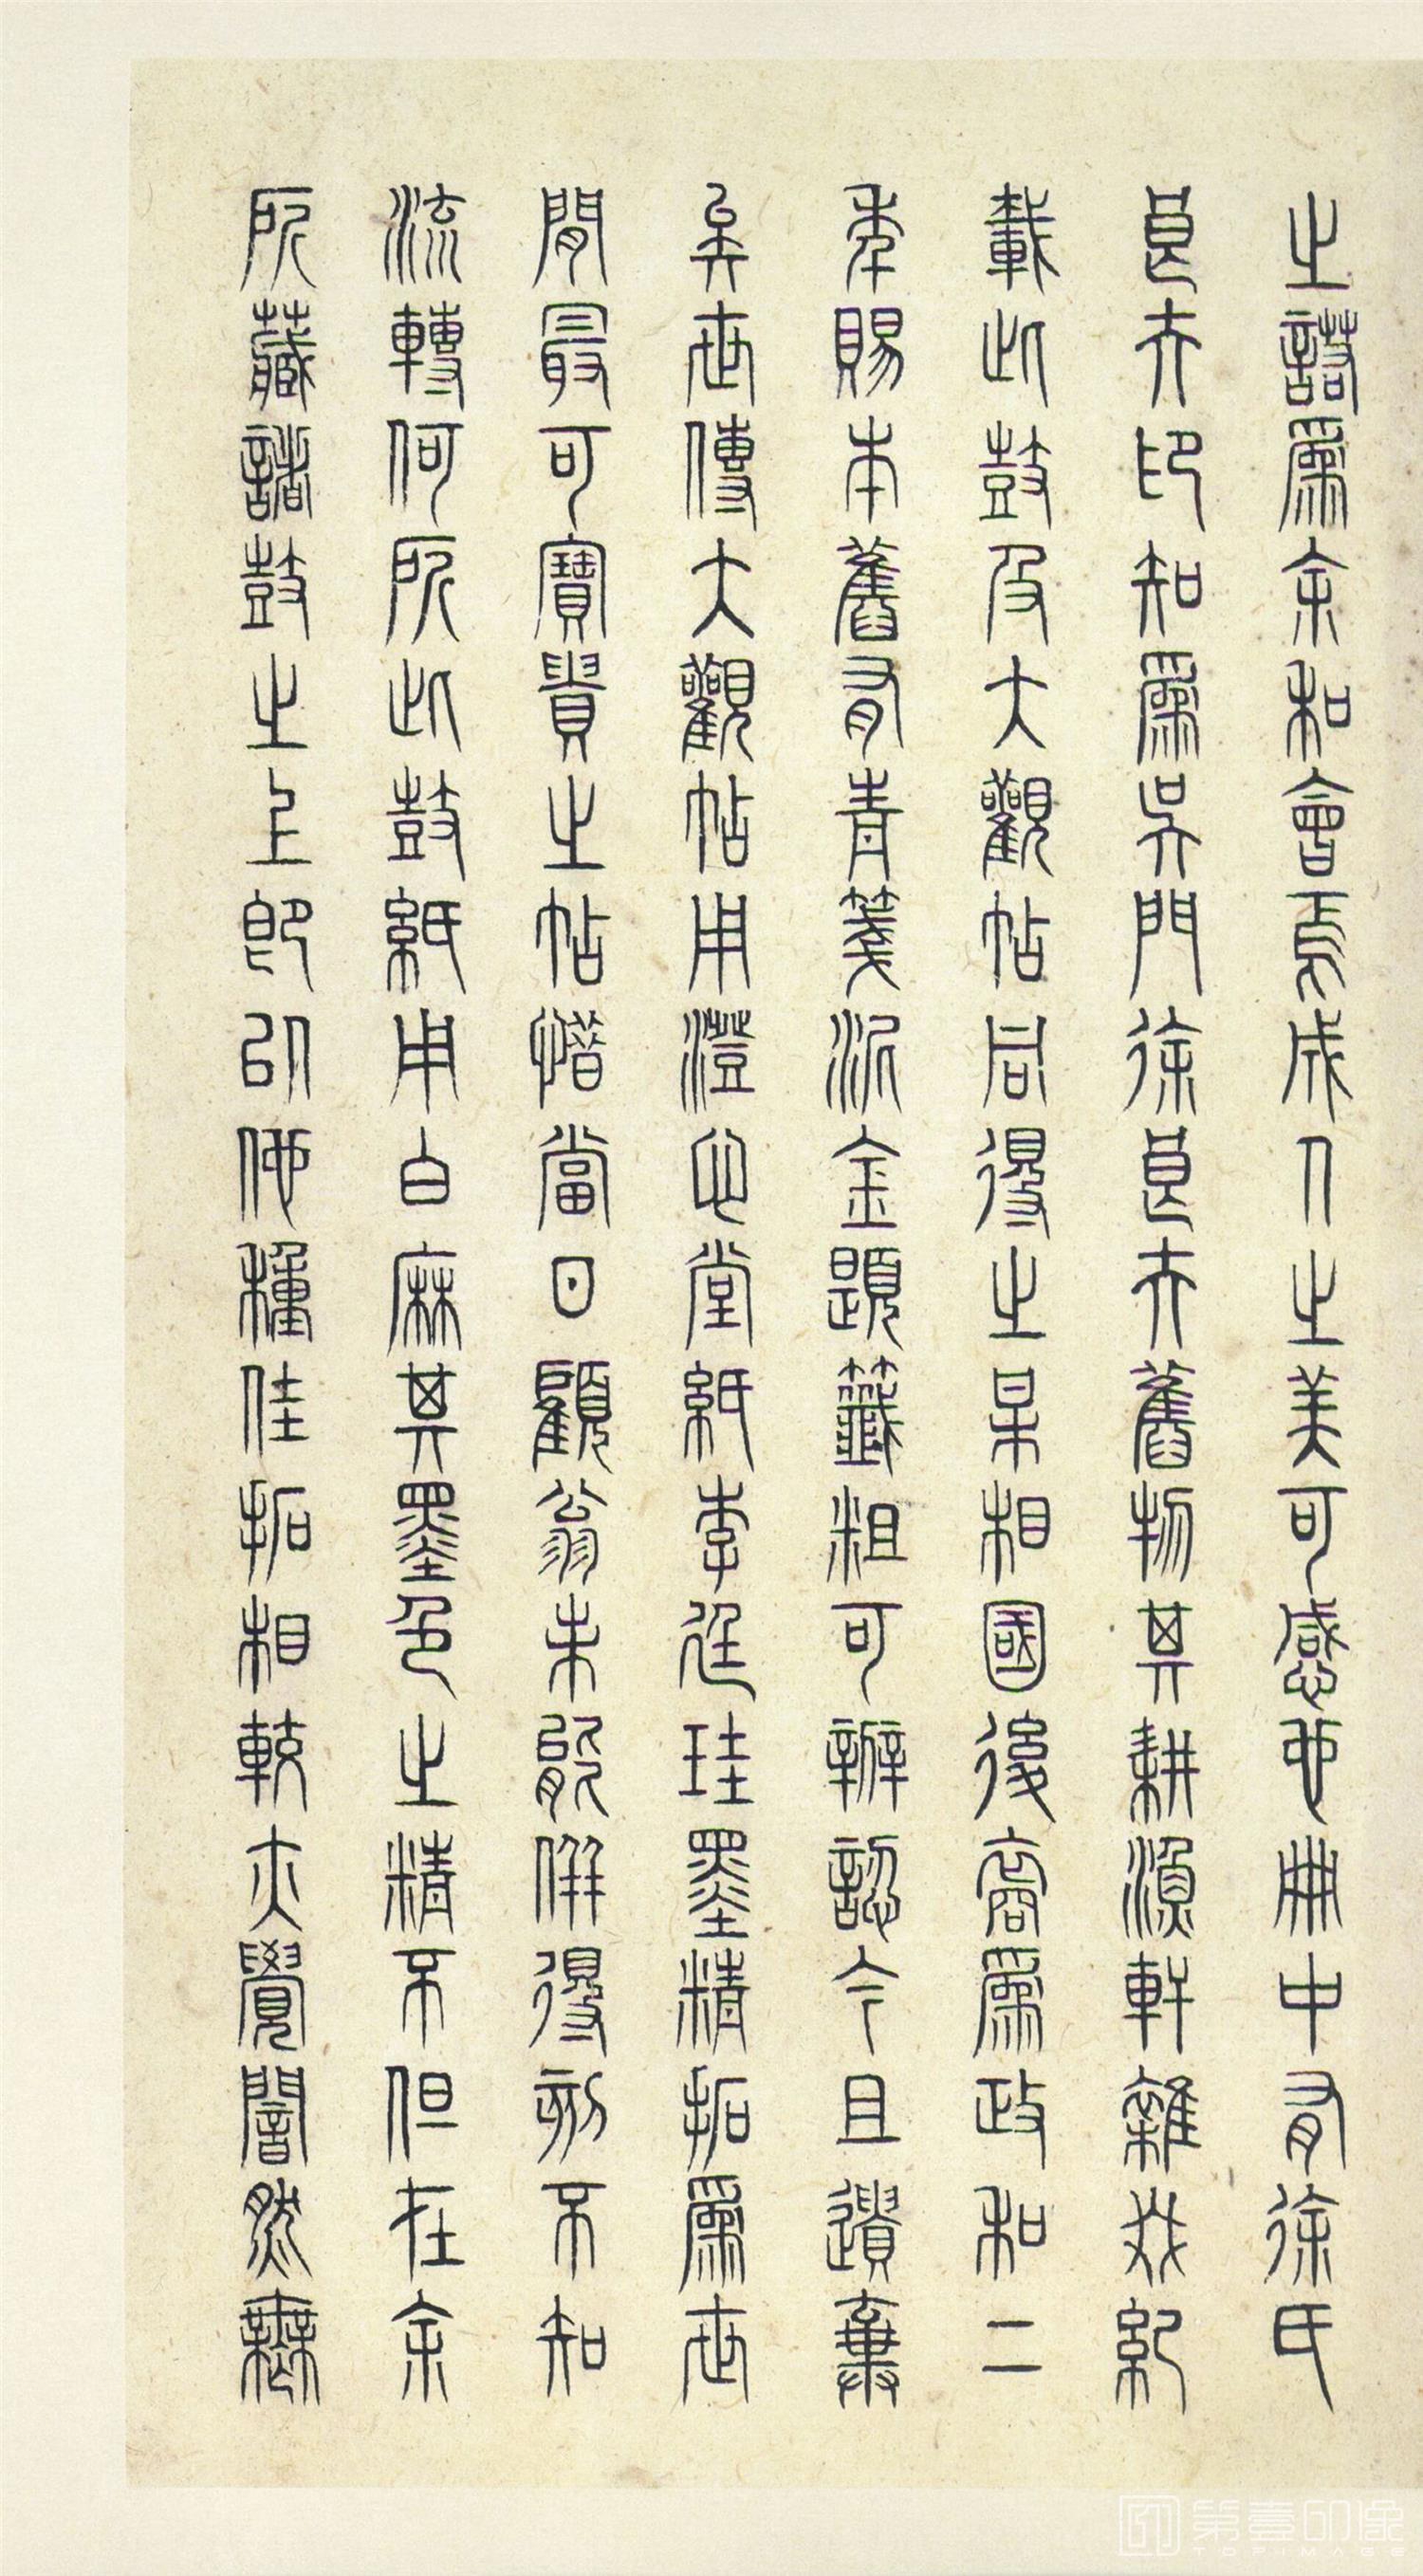 之屬余和會成人之美可感也冊中有徐氏
良夫印知屬吳門徐良夫舊物其耕漁軒雜紀
載此鼓及大觀帖同得之某相國後裔屬政和二
年賜本舊有青箋泥金題籤粗可辨認今且遺棄
矣世傳大觀帖用澄心堂紙李廷珪墨精拓屬世
間最可寶貴之帖惜當日顧翁未能併得刻不知
流轉何所此鼓紙用白麻其墨色之精不但在余
所藏諸鼓之上即以他種佳拓相較亦覺闇然無
第壹印像
TOPIMAGE